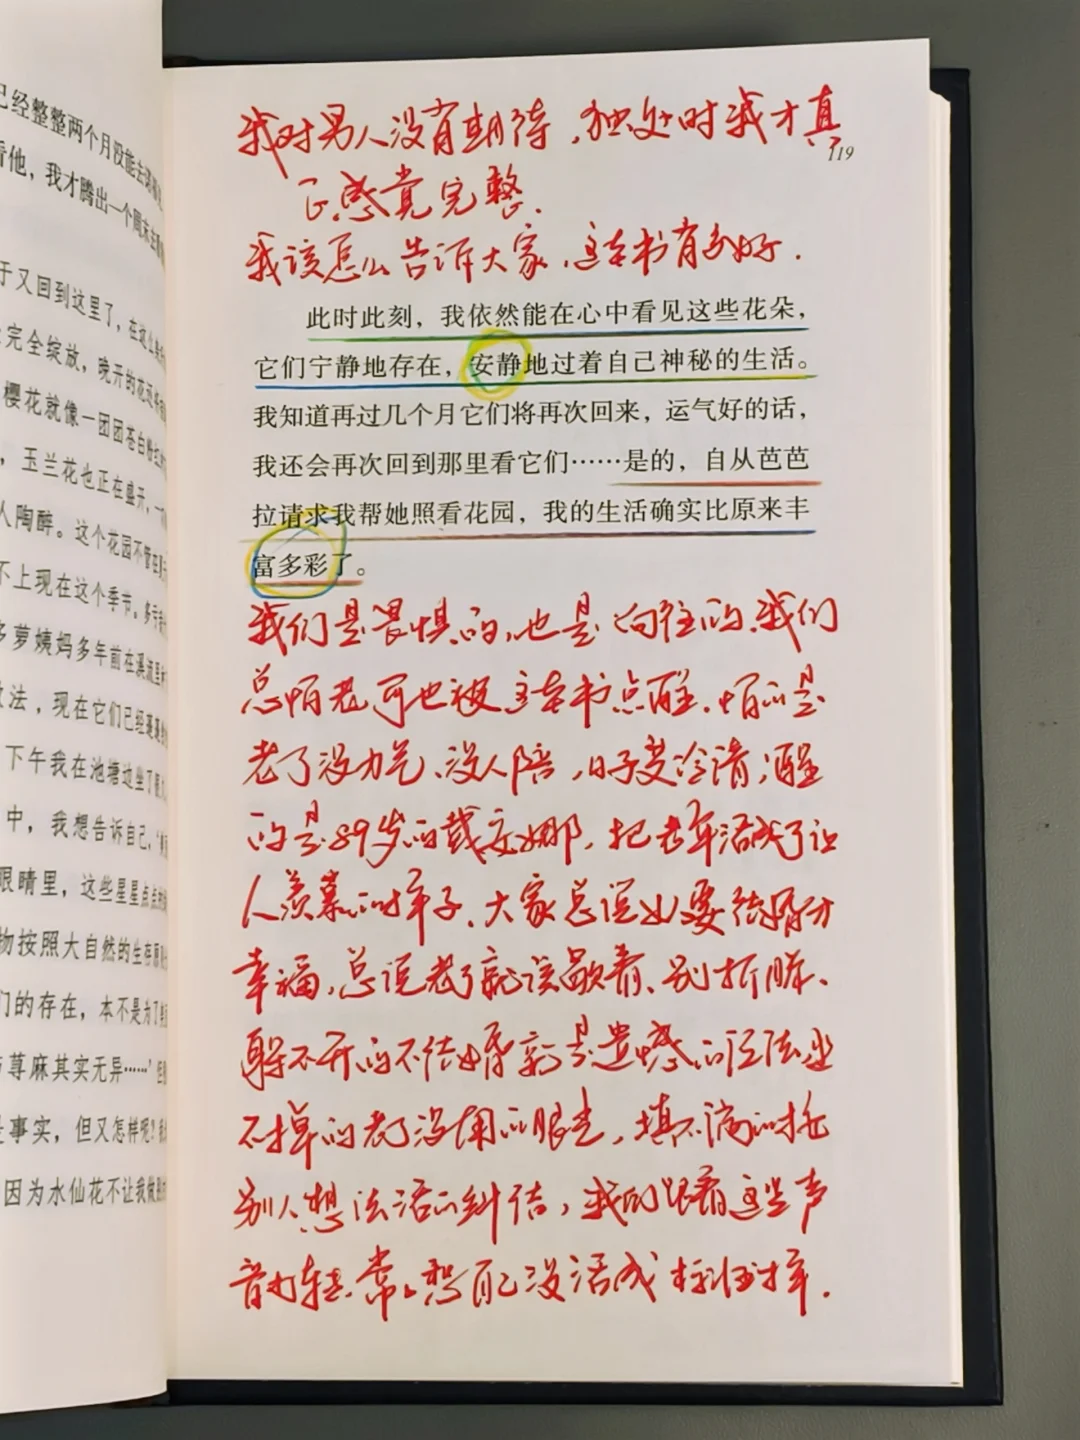 已经整整两个月没能去
看他，我才腾出一个周末去
于又回到这里了，在这么
完全绽放，晚开的花还
樱花就像一团团苍白粉红
，玉兰花也正在盛开，一
人陶醉。这个花园不管在
不上现在这个季节。多亏
多萝姨妈多年前在溪流里
方法，现在它们已经蔓
下午我在池塘边坐了很久
中，我想告诉自己，
眼睛里，这些星星点点的
物按照大自然的生存原则
们的存在，本不是为了
与荨麻其实无异……’但
是事实，但又怎样呢？我
因为水仙花不让我做
我对男人没有期待，独处时我才真
119
正感觉完整.
我该怎么告诉大家，这本书有多好.
此时此刻，我依然能在心中看见这些花朵，
它们宁静地存在，安静地过着自己神秘的生活。
我知道再过几个月它们将再次回来，运气好的话，
我还会再次回到那里看它们……是的，自从芭芭
拉请求我帮她照看花园，我的生活确实比原来丰
富多彩了。
我们是畏惧的，也是向往的、我们
总怕老可也被这本书点醒、怕的是
老了没力气、没人陪，日子变冷清；醒
的是89岁的戴安娜，把老年活成了让
人羡慕的样子、大家总说女要结婚才
幸福，总说老了就该歇着、别折腾、
躲不开的不结婚就是遗憾的说法逃
不掉的老了没用的眼光，填不满的按
别人想法活的纠结，我们跟着这些声
音打转、常常怨自己没活成标准样.